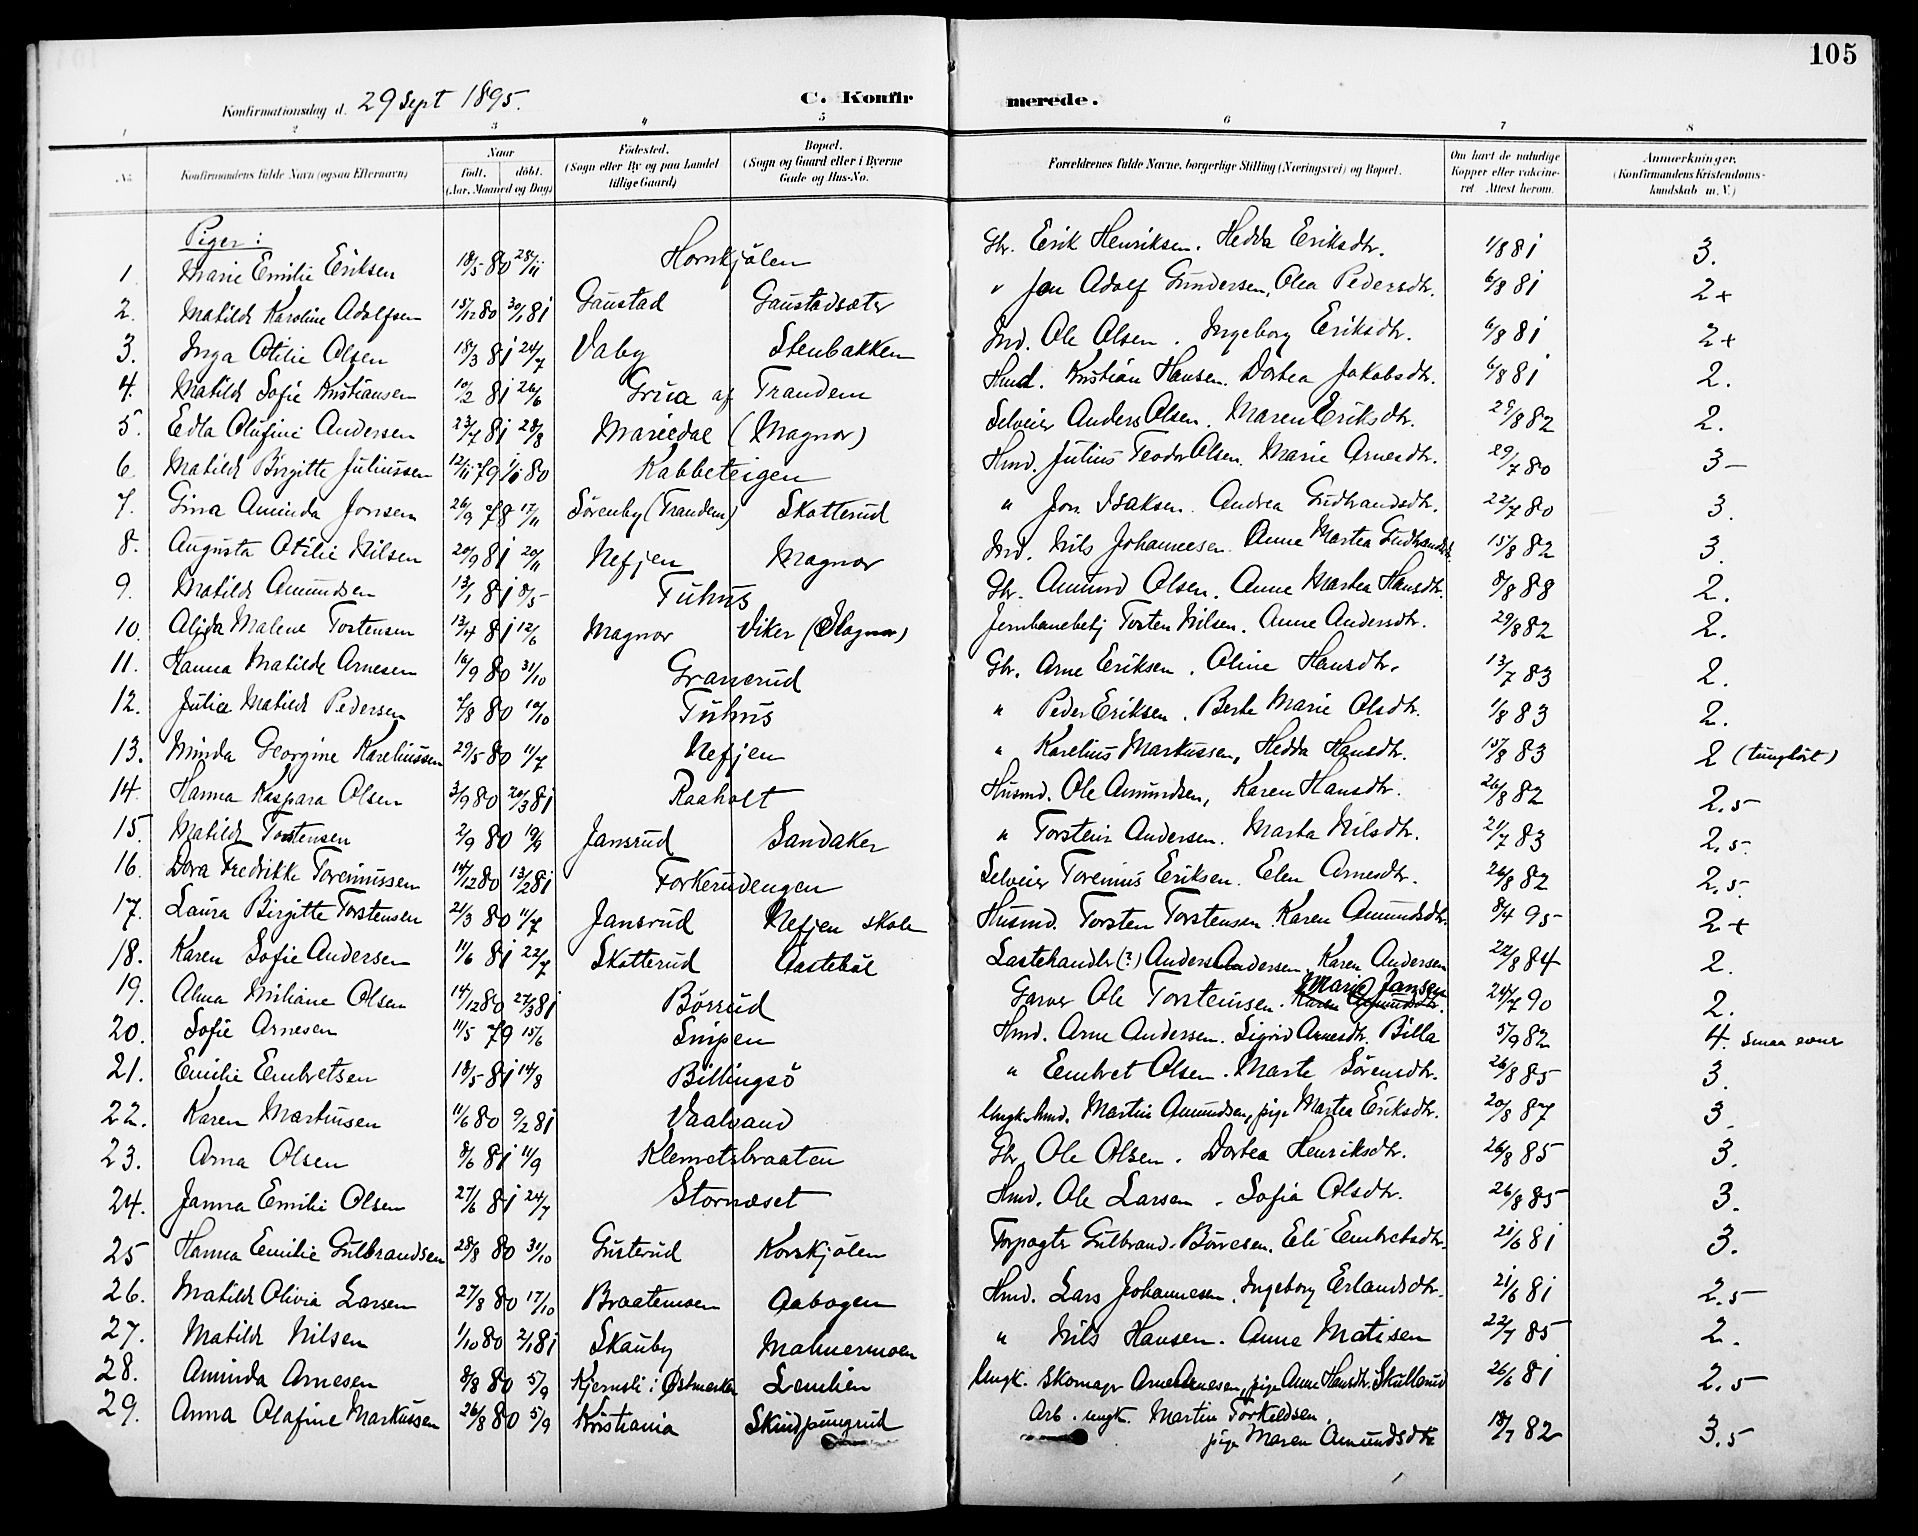 105
Konfirmationsdag d. 29 Sept 1895.
C. Konfirmerede.
1 2 3 4 5 6 7 8
No. Konfirmandens fulde Navn (ogsaa Efternavn)
Naar født. døbt. (Aar, Maaned og Dag)
Fødested. (Sogn eller By og paa Landet tillige Gaard)
Bopæl. (Sogn og Gaard eller i Byerne Gade og Hus-No.
Forældrenes fulde Navne, borgerlige Stilling (Næringsvei) og Bopæl.
Om havt de naturlige Kopper eller vakcineret Attest herom.
Anmærkninger. (Konfirmandens Kristendomskundskab m. V.)
Piger:
1. Marie Emilie Eriksen 18/5 80 28/11 Hornkjølen Gbr. Erik Henriksen. Hedda Eriksdtr. 1/8 81 3.
2. Matilde Karoline Adolfsen 15/12 80 30/1 81 Gaustad Gaustadsæter " Jon Adolf Gundersen, Olea Pedersdtr. 6/8 81 2+
3. Inga Otilie Olsen 18/3 81 24/7 Vaby Stenbakken Ind. Ole Olsen. Ingeborg Eriksdtr. 6/8 81 2+
4. Matilde Sofie Kristiansen 10/2 81 26/6 Grua af Trandem Hmd. Kristian Hansen. Dortea Jakobsdtr. 6/8 81 2.
5. Edla Olufine Andersen 23/7 81 28/8 Mariedal (Magnor) Selveier Anders Olsen. Maren Eriksdtr. 29/8 82 2.
6. Matilde Birgitte Juliussen 12/11 79 1/1 80 Kabbeteigen Hmd. Julius Teodor Olsen. Marie Arnesdtr. 29/7 80 3-
7. Gina Aminda Jonsen 26/9 78 17/11 Sörenby (Trandem) Skotterud " Jon Isaksen. Andrea Gudbrandsdtr. 22/7 80 3.
8. Augusta Otilie Nilsen 20/9 81 20/11 Nefjen Magnor Ind. Nils Johannesen. Anne Martea Gudbrandsdtr. 15/8 82 3.
9. Matilde Amundsen 13/1 81 8/5 Tuhus Gbr. Amund Olsen. Anne Martea Hansdtr. 8/8 88 2.
10. Alida Malene Torstensen 13/4 81 12/6 Magnor Viker (Magnor) Jernbanebetj Torsten Nilsen. Anne Andersdtr. 29/8 82 2.
11. Hanna Matilde Arnesen 16/9 80 31/10 Granerud Gbr. Arne Eriksen. Oline Hansdtr. 13/7 83 2.
12. Julie Matilde Pedersen 7/8 80 10/10 Tuhus " Peder Eriksen. Berte Marie Olsdtr. 1/8 83 2.
13. Minda Georgine Kareliussen 29/5 80 11/7 Nefjen " Karelius Markussen, Hedda Hansdtr. 15/8 83 2 (tunghørt)
14. Hanna Kaspara Olsen 3/9 80 20/3 81 Raaholt Husmd. Ole Amundsen, Karen Hansdtr. 26/8 82 2.5
15. Matilde Torstensen 2/9 80 19/9 Jansrud Sandaker " Torstein Andersen. Marta Nilsdtr. 21/7 83 2.5.
16. Dora Fredrikke Toreniussen 14/12 80 13/2 81 Forkerudengen Selveier Torenius Eriksen. Elen Arnesdtr. 26/8 82 2.5.
17. Laura Birgitte Torstensen 21/3 80 11/7 Jansrud Nefjen skole Husmd. Torsten Torstensen. Karen Amundsdtr. 8/4 95 2+
18. Karen Sofie Andersen 11/6 81 22/7 Skotterud Aastebøl Lastehandler (?) Anders Andersen, Karen Andersen 22/8 84 2.
19. Alma Miliane Olsen 14/12 80 27/3 81 Börrud Garver Ole Torsteinsen. Marie Jansen 24/7 90 2.
20. Sofie Arnesen 11/5 79 15/6 Snipen Hmd. Arne Andersen. Sigrid Arnesdtr. Billa 5/9 82 4. smaa evner
21. Emilie Embretsen 18/5 81 14/8 Billingsö " Embret Olsen. Marte Sörensdtr. 26/8 85 3.
22. Karen Martinsen 11/6 80 9/2 81 Vaalvand Ungk. hmd. Martin Amundsen, pige Martea Eriksdtr. 20/8 87 3.
23. Arna Olsen 8/6 81 11/9 Klemetsbraaten Gbr. Ole Olsen. Dortea Henriksdtr. 26/8 85 3.
24. Janna Emilie Olsen 27/6 81 24/7 Stornæset Hmd. Ole Larsen. Sofia Olsdtr. 26/8 85 3.
25 Hanna Emilie Gulbrandsen 28/8 80 31/10 Gusterud Korskjølen Forpagter Gulbrand Börresen. Eli Embretsdtr. 21/6 81 3.
26. Matilde Olivia Larsen 27/8 80 17/10 Braatemoen Aabogen Hmd. Lars Johannesen. Ingeborg Erlandsdtr. 21/6 81 2.5
27. Matilde Nilsen 1/10 80 2/1 81 Skauby Malmermoen " Nils Hansen. Anne Matisen 22/7 85 2.
28. Aminda Arnesen 8/8 80 5/9 Kjernsli i Østmarka Lemlien Ungk. Skomager Arne Arnesen, pige Anne Hansdtr. Skullerud 26/6 81 2.5
29. Anna Olafine Markussen 26/8 80 5/9 Kristiania Skindpungrud Arb. ungk. Martin Torkildsen, pige Maren Amundsdtr 18/7 82 3.5